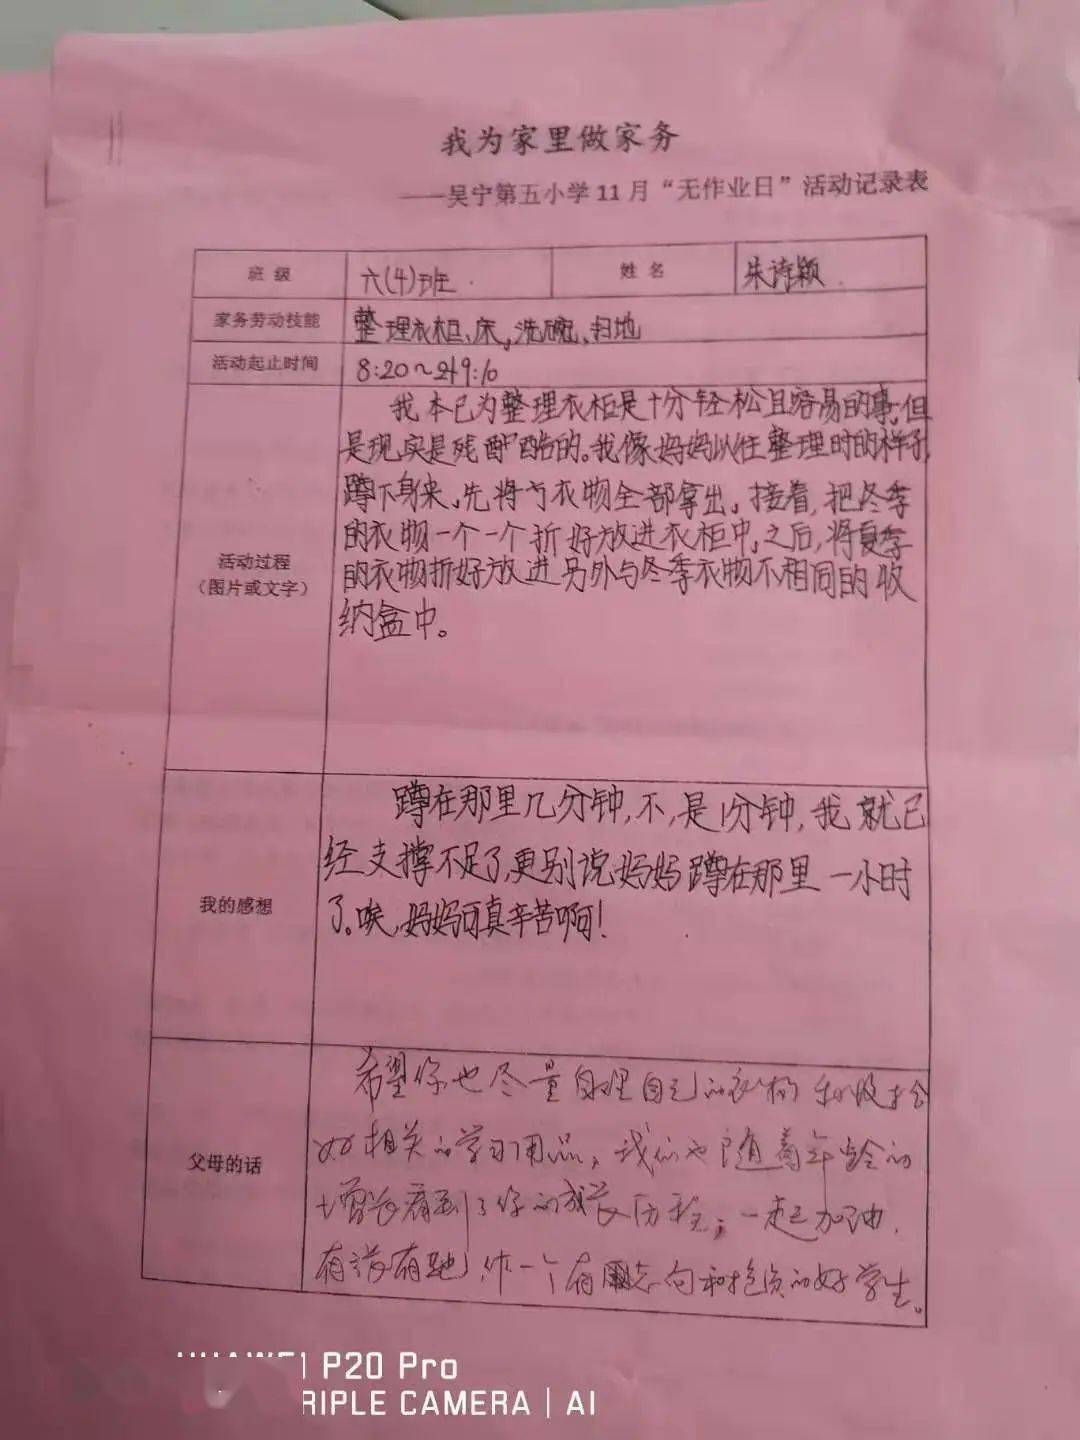 我为家里做家务
——吴宁第五小学11月“无作业日”活动记录表
班级 六(4)班 姓名 朱诗颖
家务劳动技能 整理衣柜、床,洗碗、扫地
活动起止时间 8:20~9:10
我本已为整理衣柜是十分轻松且容易的事,但
是现实是残酷的。我像妈妈以往整理时的样子,
蹲下身来,先将衣物全部拿出。接着,把冬季
的衣物一个一个折好放进衣柜中,之后,将夏季
的衣物折好放进另外与冬季衣物不相同的收
纳盒中。
活动过程
(图片或文字)
蹲在那里几分钟,不,是1分钟,我就已
经支撑不足了,更别说妈妈蹲在那里一小时
了。唉,妈妈可真辛苦啊!
我的感想
希望你也尽量自理自己的衣物和收拾
好相关的学习用品,我们也随着年龄的
增长看到了你的成长历程,一起加油,
有 有 ,作一个有志向和抱负的好学生。
父母的话
P20 Pro
RIPLE CAMERA | AI